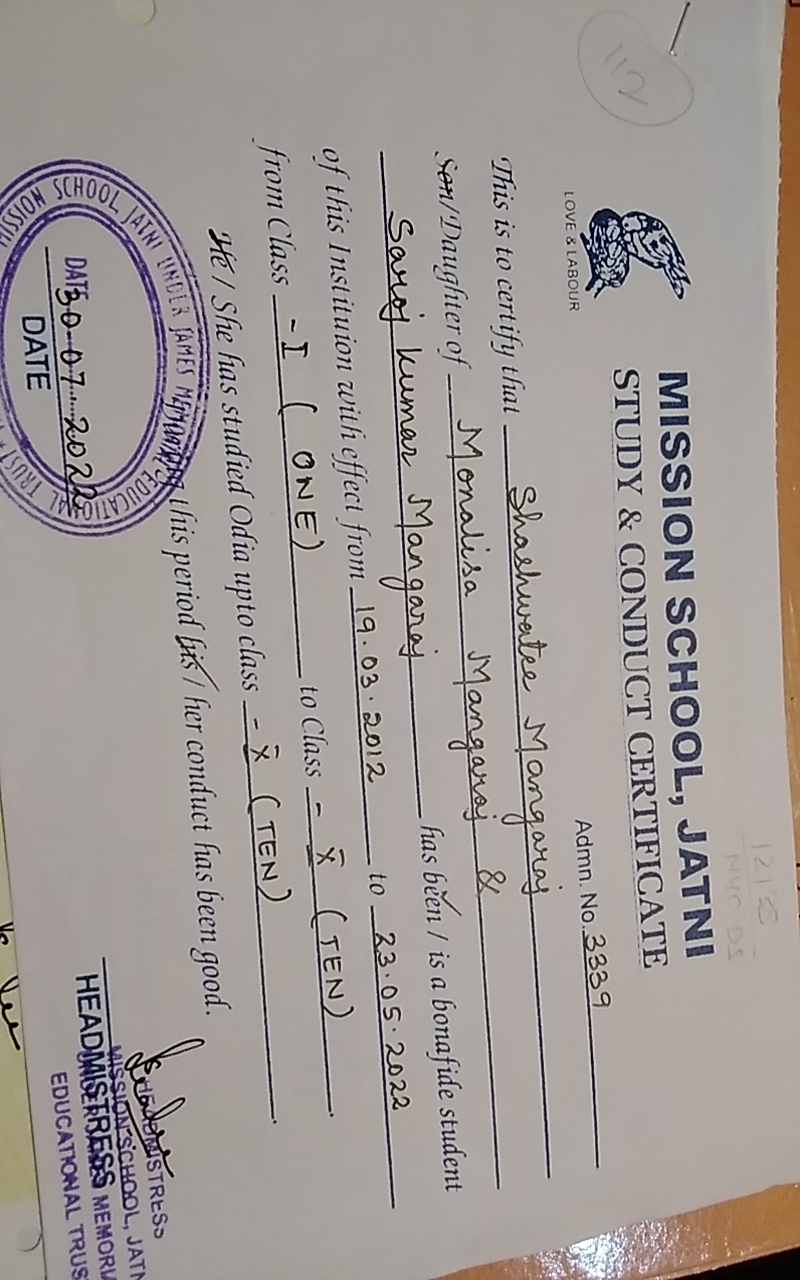 112
MISSION SCHOOL, JATNI
STUDY & CONDUCT CERTIFICATE
LOVE & LABOUR
Admn. No. 3339
This is to certify that Shashwatee Mangaraj
Son/Daughter of Monalisa Mangaraj &
Saroj kumar Mangaraj has been / is a bonafide student
of this Instituion with effect from 19.03.2012 to 23.05.2022
from Class - I ( ONE) to Class - X (TEN)
He / She has studied Odia upto class - X (TEN)
this period his / her conduct has been good.
MISSION SCHOOL JATNI UNDER JAMES MEMORIAL EDUCATIONAL TRUST
DATE 30-07-2022
DATE
HEADMISTRESS
MISSION SCHOOL, JATN
HEADMISTRESS
MEMORIA
EDUCATIONAL TRUS